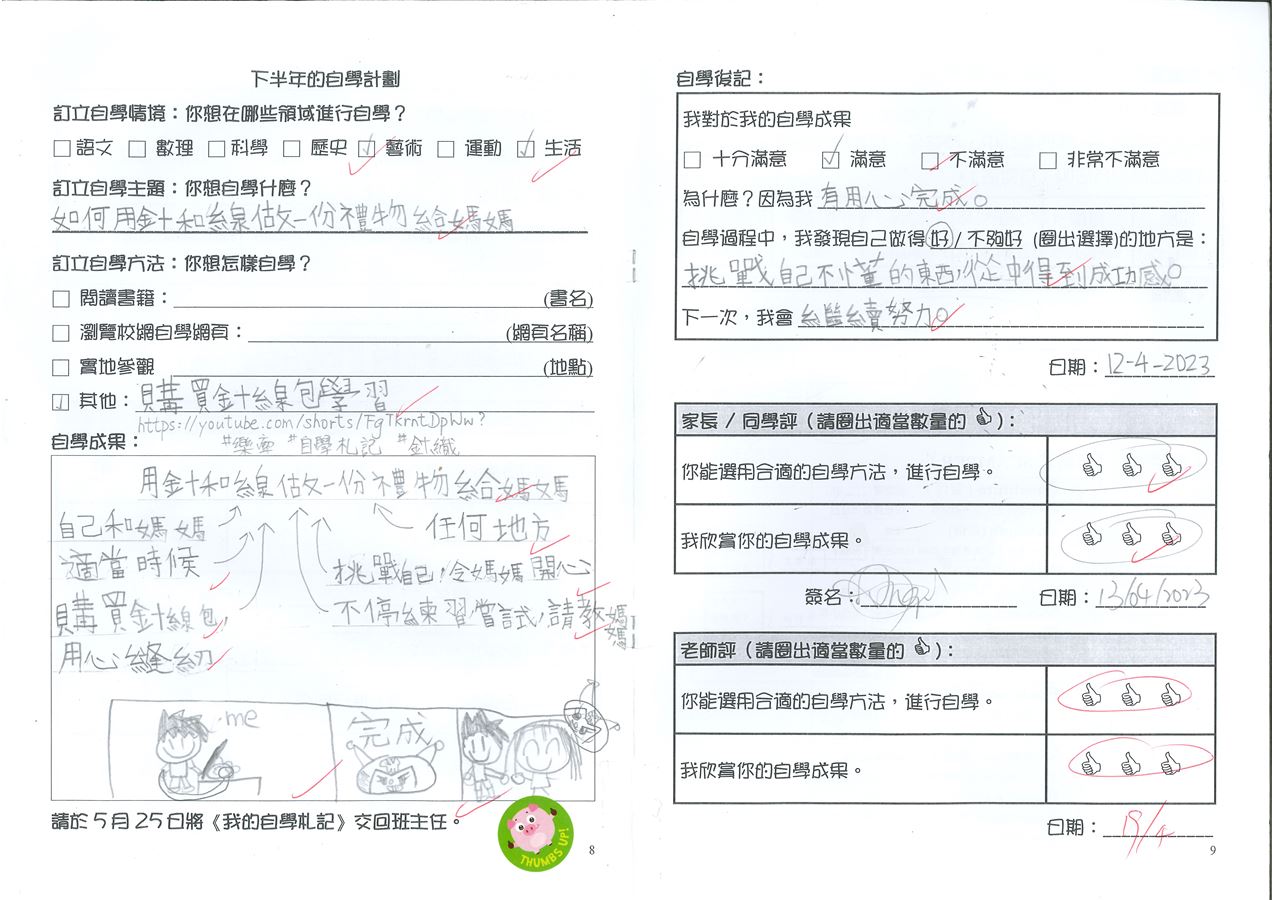 下半年的自學計劃
訂立自學情境：你想在哪些領域進行自學？
☐語文 ☐數理 ☐科學 ☐歷史 ☑藝術 ☐運動 ☑生活
訂立自學主題：你想自學什麼？
如何用針和線做一份禮物給媽媽
訂立自學方法：你想怎樣自學？
☐ 閱讀書籍：(書名)
☐ 瀏覽校網自學網頁：(網頁名稱)
☐ 實地參觀 (地點)
☑ 其他：購買針線包學習
https://youtube.com/shorts/FgTKrntDpWw?
自學成果：
#樂 #自學札記 #針織
用針和線做一份禮物給媽媽
自己和媽媽
任何地方
適當時候
挑戰自己，令媽媽開心
購買針線包，
不停練習嘗試，請教媽媽
用心縫紉
me
完成
請於5月25日將《我的自學札記》交回班主任。
THUMBS UP!
8
自學後記：
我對於我的自學成果
☐ 十分滿意 ☑ 滿意 ☐ 不滿意 ☐ 非常不滿意
為什麼？因為我 有用心完成。
自學過程中，我發現自己做得好/不夠好 (圈出選擇)的地方是：
挑戰自己不懂的東西，從中得到成功感。
下一次，我會 繼續努力。
日期：12-4-2023
家長 / 同學評（請圈出適當數量的 👍）：
你能選用合適的自學方法，進行自學。 👍 👍 👍
我欣賞你的自學成果。 👍 👍 👍
簽名： 日期：13/04/2023
老師評（請圈出適當數量的 👍）：
你能選用合適的自學方法，進行自學。 👍 👍 👍
我欣賞你的自學成果。 👍 👍 👍
日期：19/4
9